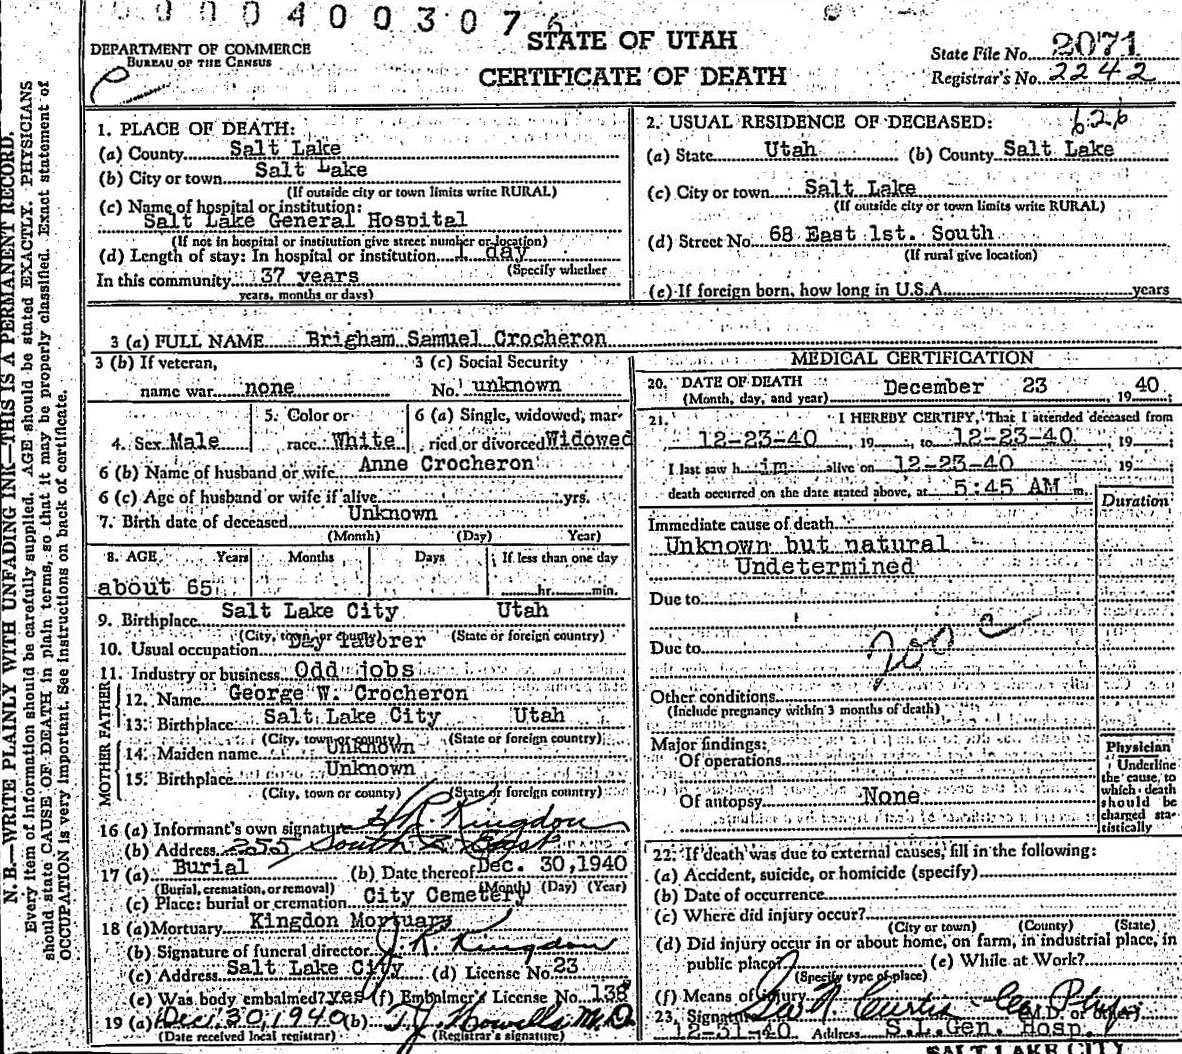 00004003076
STATE OF UTAH
DEPARTMENT OF COMMERCE
BUREAU OF THE CENSUS
CERTIFICATE OF DEATH
State File No. 2071
Registrar's No. 2242
N. B.—WRITE PLAINLY WITH UNFADING INK—THIS IS A PERMANENT RECORD.
Every item of information should be carefully supplied. AGE should be stated EXACTLY. PHYSICIANS
should state CAUSE OF DEATH in plain terms, so that it may be properly classified. Exact statement of
OCCUPATION is very important. See instructions on back of certificate.
1. PLACE OF DEATH:
(a) County Salt Lake
(b) City or town Salt Lake
(If outside city or town limits write RURAL)
(c) Name of hospital or institution:
Salt Lake General Hospital
(If not in hospital or institution give street number or location)
(d) Length of stay: In hospital or institution 1 day
(Specify whether
In this community 37 years
years, months or days)
2. USUAL RESIDENCE OF DECEASED: 626
(a) State Utah (b) County Salt Lake
(c) City or town Salt Lake
(If outside city or town limits write RURAL)
(d) Street No. 68 East 1st. South
(If rural give location)
(e) If foreign born, how long in U.S.A. years
3 (a) FULL NAME Brigham Samuel Crocheron
3 (b) If veteran,
name war none
3 (c) Social Security
No. unknown
4. Sex Male
5. Color or
race White
6 (a) Single, widowed, mar-
ried or divorced Widowed
6 (b) Name of husband or wife Anne Crocheron
6 (c) Age of husband or wife if alive yrs.
7. Birth date of deceased Unknown
(Month) (Day) Year)
8. AGE Years Months Days If less than one day
about 65 hr. min.
9. Birthplace Salt Lake City Utah
(City, town, or county) (State or foreign country)
10. Usual occupation Day laborer
11. Industry or business Odd jobs
FATHER
12. Name George W. Crocheron
13. Birthplace Salt Lake City Utah
(City, town or county) (State or foreign country)
MOTHER
14. Maiden name Unknown
15. Birthplace Unknown
(City, town or county) (State or foreign country)
16 (a) Informant's own signature J R Kingdon
(b) Address 255 South 2 East
17 (a) Burial (b) Date thereof Dec. 30,1940
(Burial, cremation, or removal) (Month) (Day) (Year)
(c) Place: burial or cremation City Cemetery
18 (a) Mortuary Kingdon Mortuary
(b) Signature of funeral director J. R. Kingdon
(c) Address Salt Lake City (d) License No. 23
(e) Was body embalmed? yes (f) Embalmer's License No. 138
19 (a) Dec. 30, 1940 (b) T. J. Howells M.D.
(Date received local registrar) (Registrar's signature)
MEDICAL CERTIFICATION
20. DATE OF DEATH December 23 19 40
(Month, day, and year)
21. I HEREBY CERTIFY, That I attended deceased from
12-23-40, 19 , to 12-23-40, 19
I last saw h im alive on 12-23-40, 19
death occurred on the date stated above, at 5:45 AM m.
Duration
Immediate cause of death
Unknown but natural
Undetermined
Due to
Due to 200 c
Other conditions
(Include pregnancy within 3 months of death)
Major findings:
Of operations
Of autopsy None
Physician
Underline
the cause, to
which death
should be
charged sta-
tistically
22. If death was due to external causes, fill in the following:
(a) Accident, suicide, or homicide (specify)
(b) Date of occurrence
(c) Where did injury occur?
(City or town) (County) (State)
(d) Did injury occur in or about home, on farm, in industrial place, in
public place? (e) While at Work?
(Specify type of place)
(f) Means of injury
23. Signature N. Curtis Co. Phy.
(M.D. or other)
12-31-40 Address S.L. Gen. Hosp.
SALT LAKE CITY